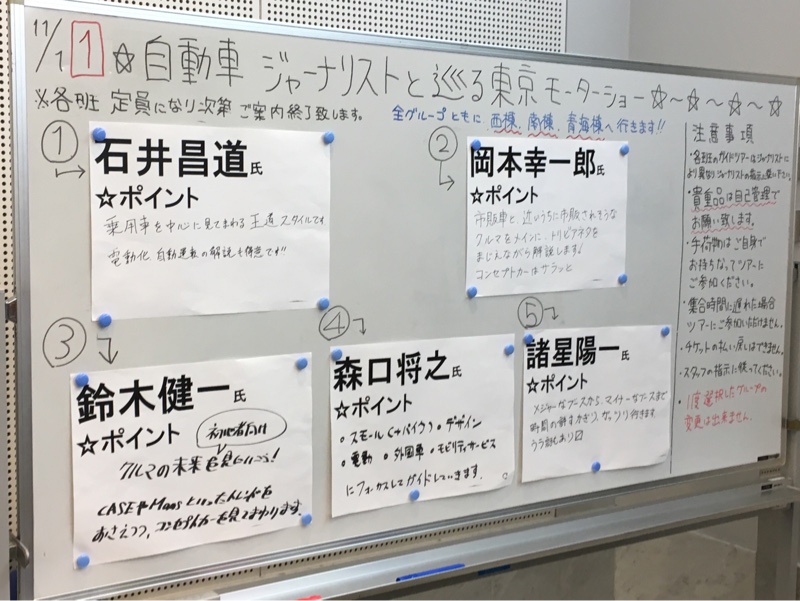 11/1 1 ☆自動車 ジャーナリストと巡る東京モーターショー☆〜☆〜☆〜☆
※各班 定員になり次第 ご案内終了致します。
全グループともに 西棟、南棟、青海棟へ行きます!!
①
石井昌道氏
☆ポイント
乗用車を中心に見てまわる王道スタイルです
電動化、自動運転の解説も得意です!!
②
岡本幸一郎氏
☆ポイント
市販車と、近いうちに市販されそうな
クルマをメインに、トリビアネタを
まじえながら解説します!
コンセプトカーはサラッと
③
鈴木健一氏
☆ポイント
初心者向け
クルマの未来を見にいこう!
CASEやMaaSといったトレンドを
おさえつつ、コンセプトカーを見てまわります。
④
森口将之氏
☆ポイント
・スモール(+バイク)・デザイン
・電動 ・外国車 ・モビリティサービス
にフォーカスしてガイドしていきます。
⑤
諸星陽一氏
☆ポイント
メジャーなブースから、マイナーなブースまで
時間の許すかぎり、ガッツリ行きます
注意事項
・各班のガイドツアーはジャーナリストに
より異なりジャーナリストの指示に従い下さい。
・貴重品は自己管理で
お願い致します。
・手荷物はご自身で
お持ちなってツアーに
ご参加ください。
・集合時間に遅れた場合
ツアーにご参加いただけません。
・チケットの払い戻しはできません。
・スタッフの指示に従ってください。
・1度選択したグループの
変更は出来ません。